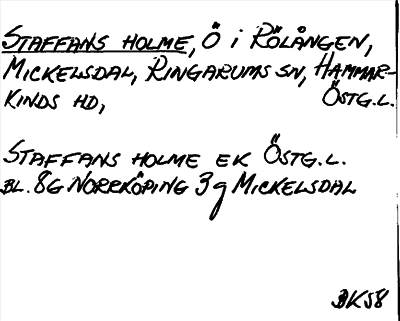 STAFFANS HOLME, Ö i RÖLÅNGEN,
MICKELSDAL, RINGARUMS SN, HAMMAR-
KINDS HD, ÖSTG.L.
STAFFANS HOLME EK ÖSTG.L.
BL. 8G NORRKÖPING 3g MICKELSDAL
BK58